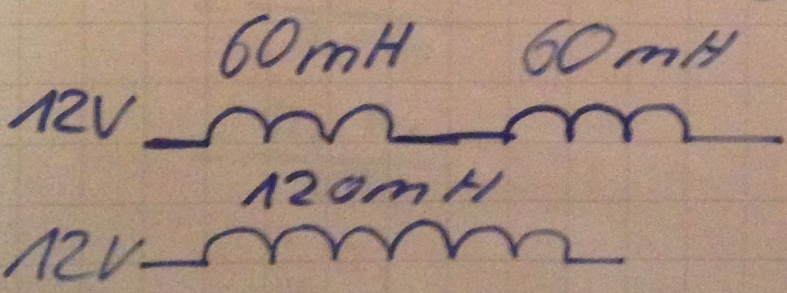 60mH 60mH
12V
120mH
12V